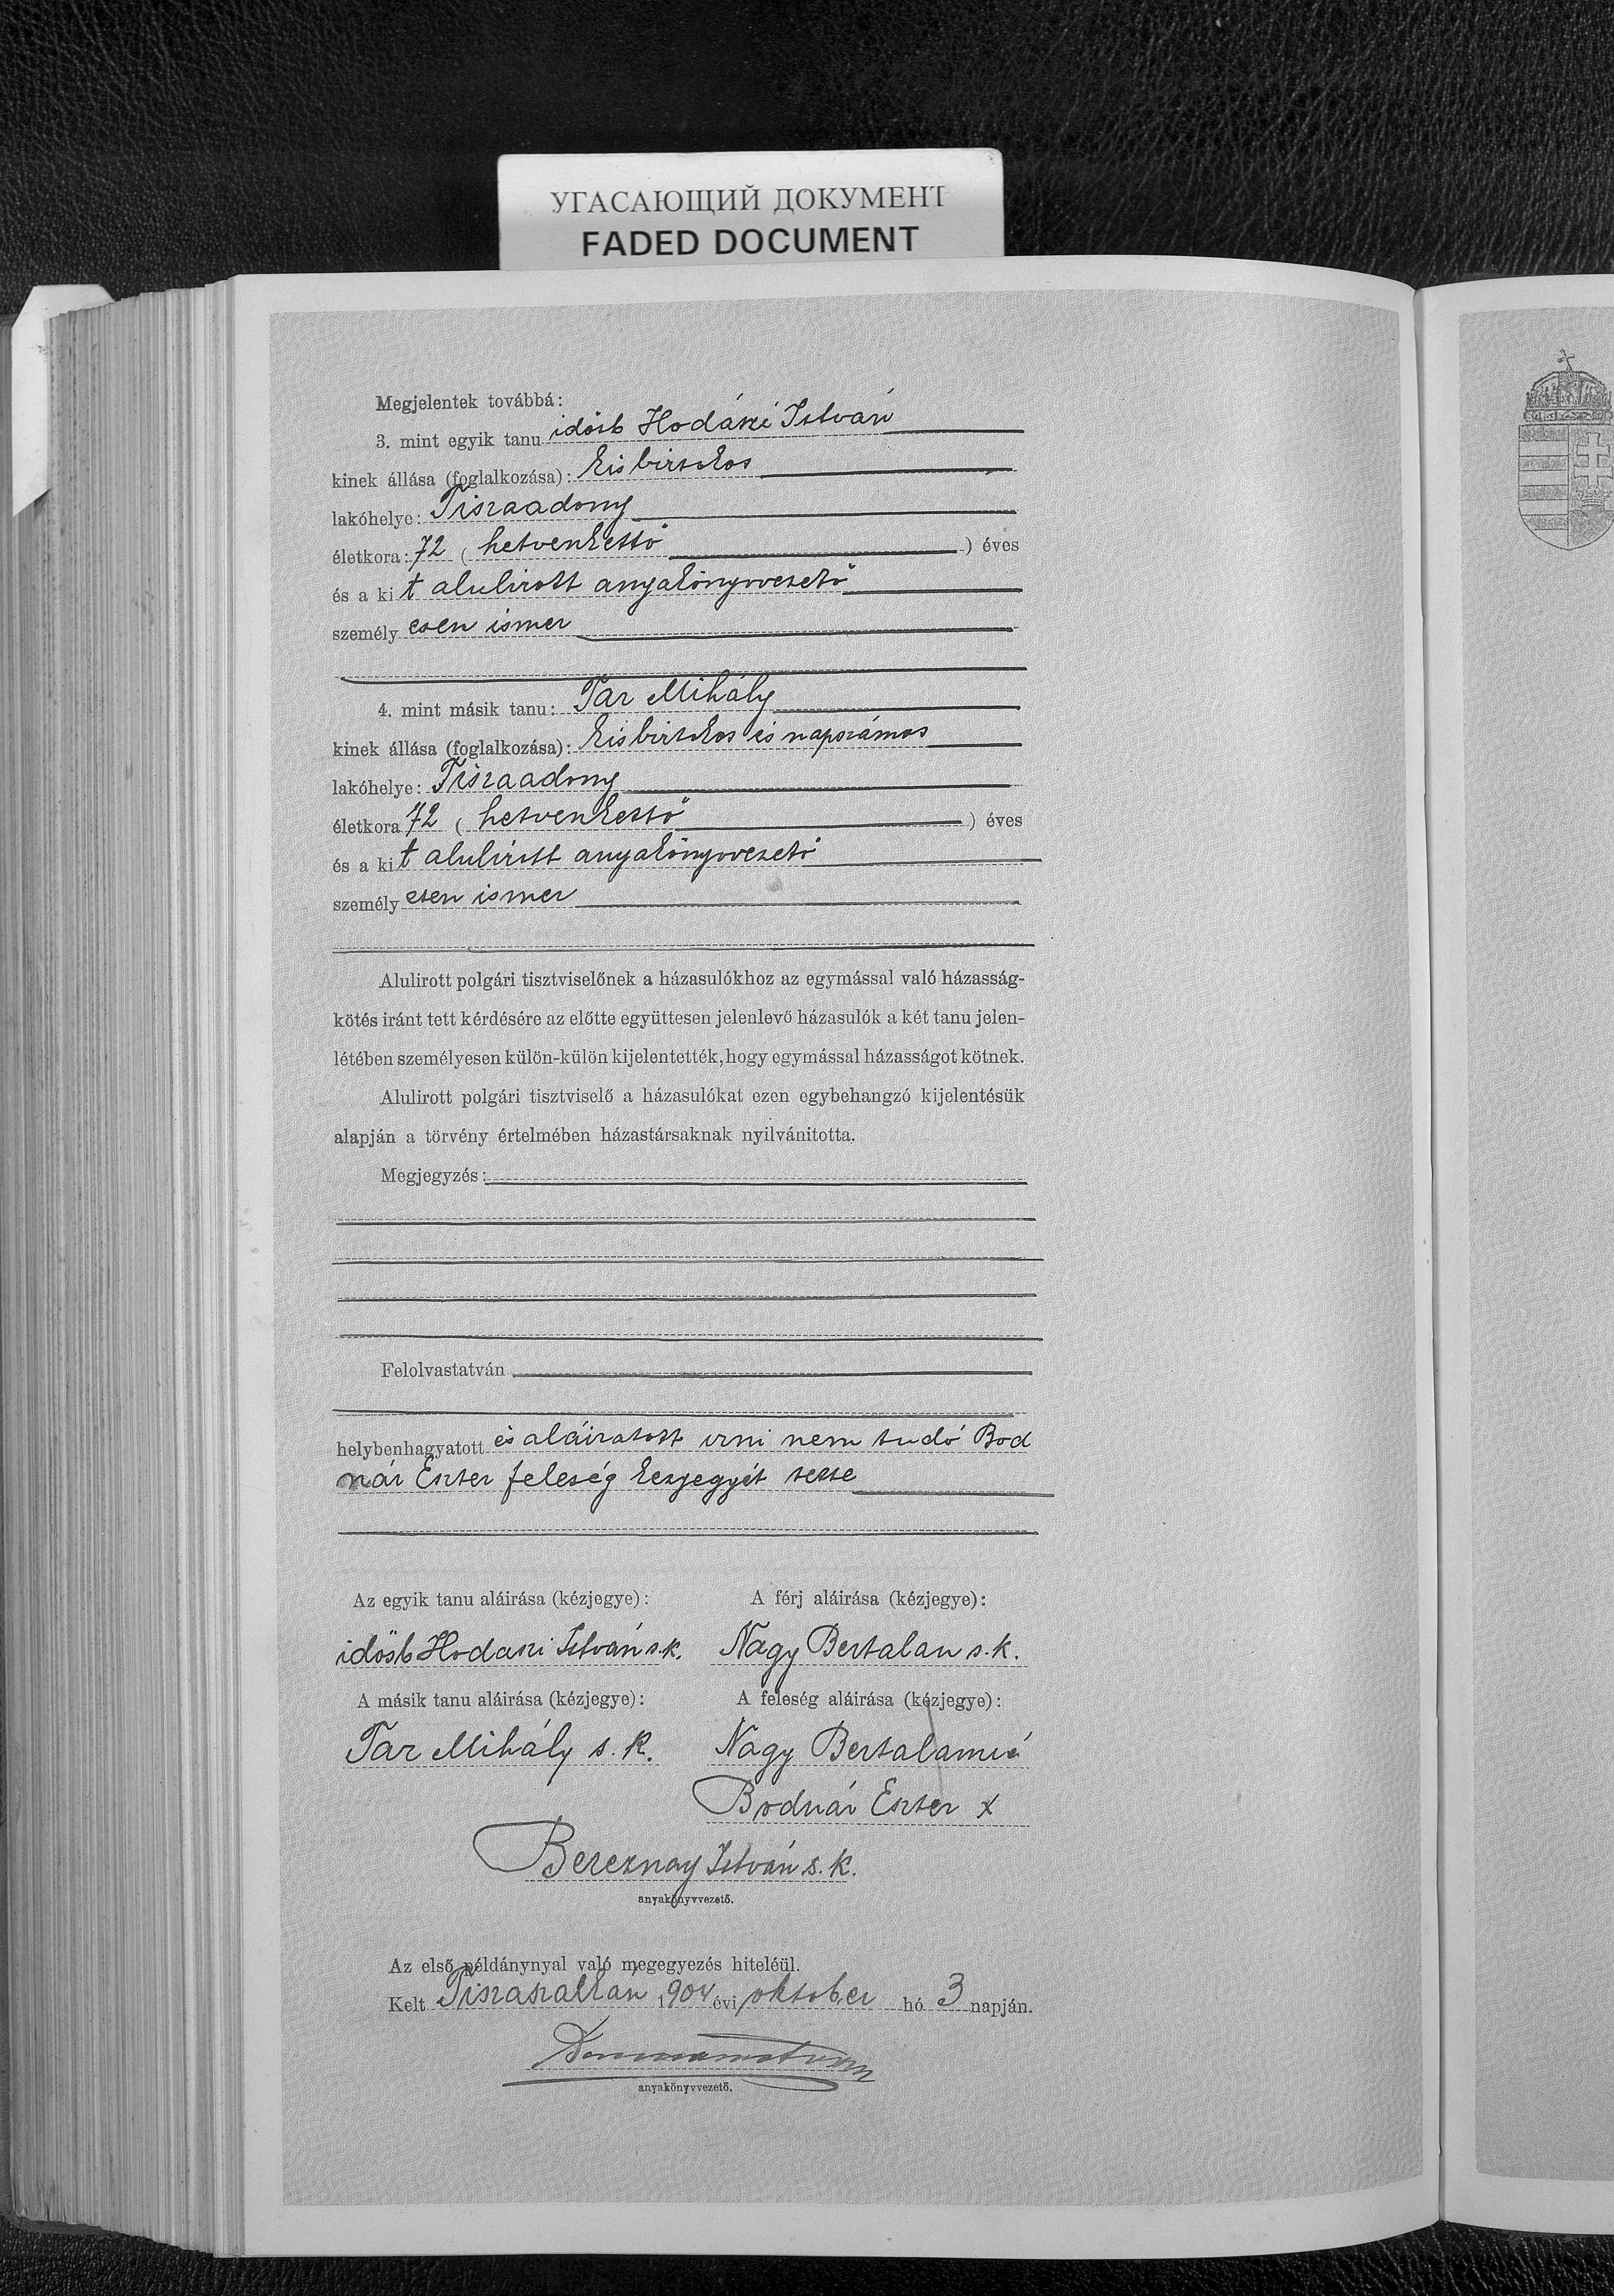 УГАСАЮЩИЙ ДОКУМЕНТ
FADED DOCUMENT
Megjelentek továbbá:
3. mint egyik tanu idősb Hodászi István
kinek állása (foglalkozása): kisbirtokos
lakóhelye: Tiszaadony
életkora: 72 ( hetvenkettő ) éves
és a ki t alulirott anyakönyvvezető
személy esen ismer
4. mint másik tanu: Tar Mihály
kinek állása (foglalkozása): kisbirtokos és napszámos
lakóhelye: Tiszaadony
életkora 72 ( hetvenkettő ) éves
és a ki t alulirott anyakönyvvezető
személy esen ismer
Alulirott polgári tisztviselőnek a házasulókhoz az egymással való házasság-
kötés iránt tett kérdésére az előtte együttesen jelenlevő házasulók a két tanu jelen-
létében személyesen külön-külön kijelentették, hogy egymással házasságot kötnek.
Alulirott polgári tisztviselő a házasulókat ezen egybehangzó kijelentésük
alapján a törvény értelmében házastársaknak nyilvánitotta.
Megjegyzés:
Felolvastatván
helybenhagyatott és aláiratott irni nem tudó Bod
nár Eszter feleség kezjegyét tette
Az egyik tanu aláirása (kézjegye): A férj aláirása (kézjegye):
idősb Hodaszi István s.k. Nagy Bertalan s.k.
A másik tanu aláirása (kézjegye): A feleség aláirása (kézjegye):
Tar Mihály s.k. Nagy Bertalanné
Bodnár Eszter x
Bereznay István s.k.
anyakönyvvezető.
Az első példánynyal való megegyezés hiteléül.
Kelt Tiszaszalkán 1904 évi oktober hó 3 napján.
anyakönyvvezető.